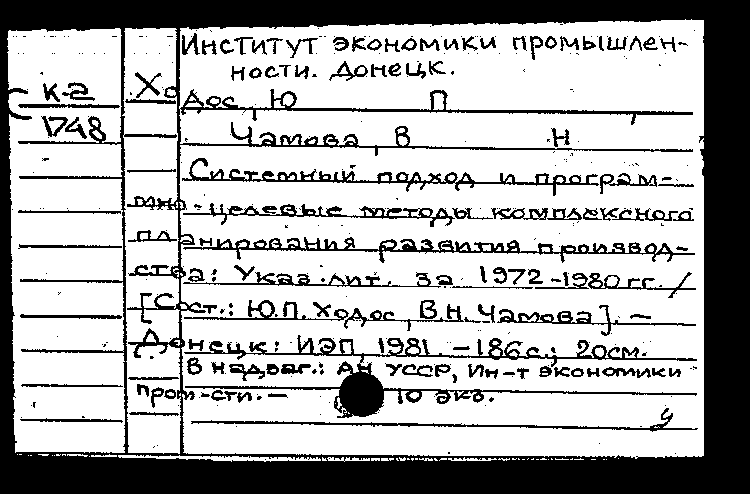 Институт экономики промышлен-
ности. Донецк.
К-2
1748
Ходос, Ю П
Чамова, В Н
Системный подход и програм-
мно-целевые методы комплексного
планирования развития производ-
ства: Указ. лит. за 1972-1980 гг. /
[Сост.: Ю.П. Ходос, В.Н. Чамова]. —
Донецк: ИЭП, 1981. - 186 с.; 20 см.
В надзаг.: АН УССР, Ин-т экономики
пром-сти. — 10 экз.